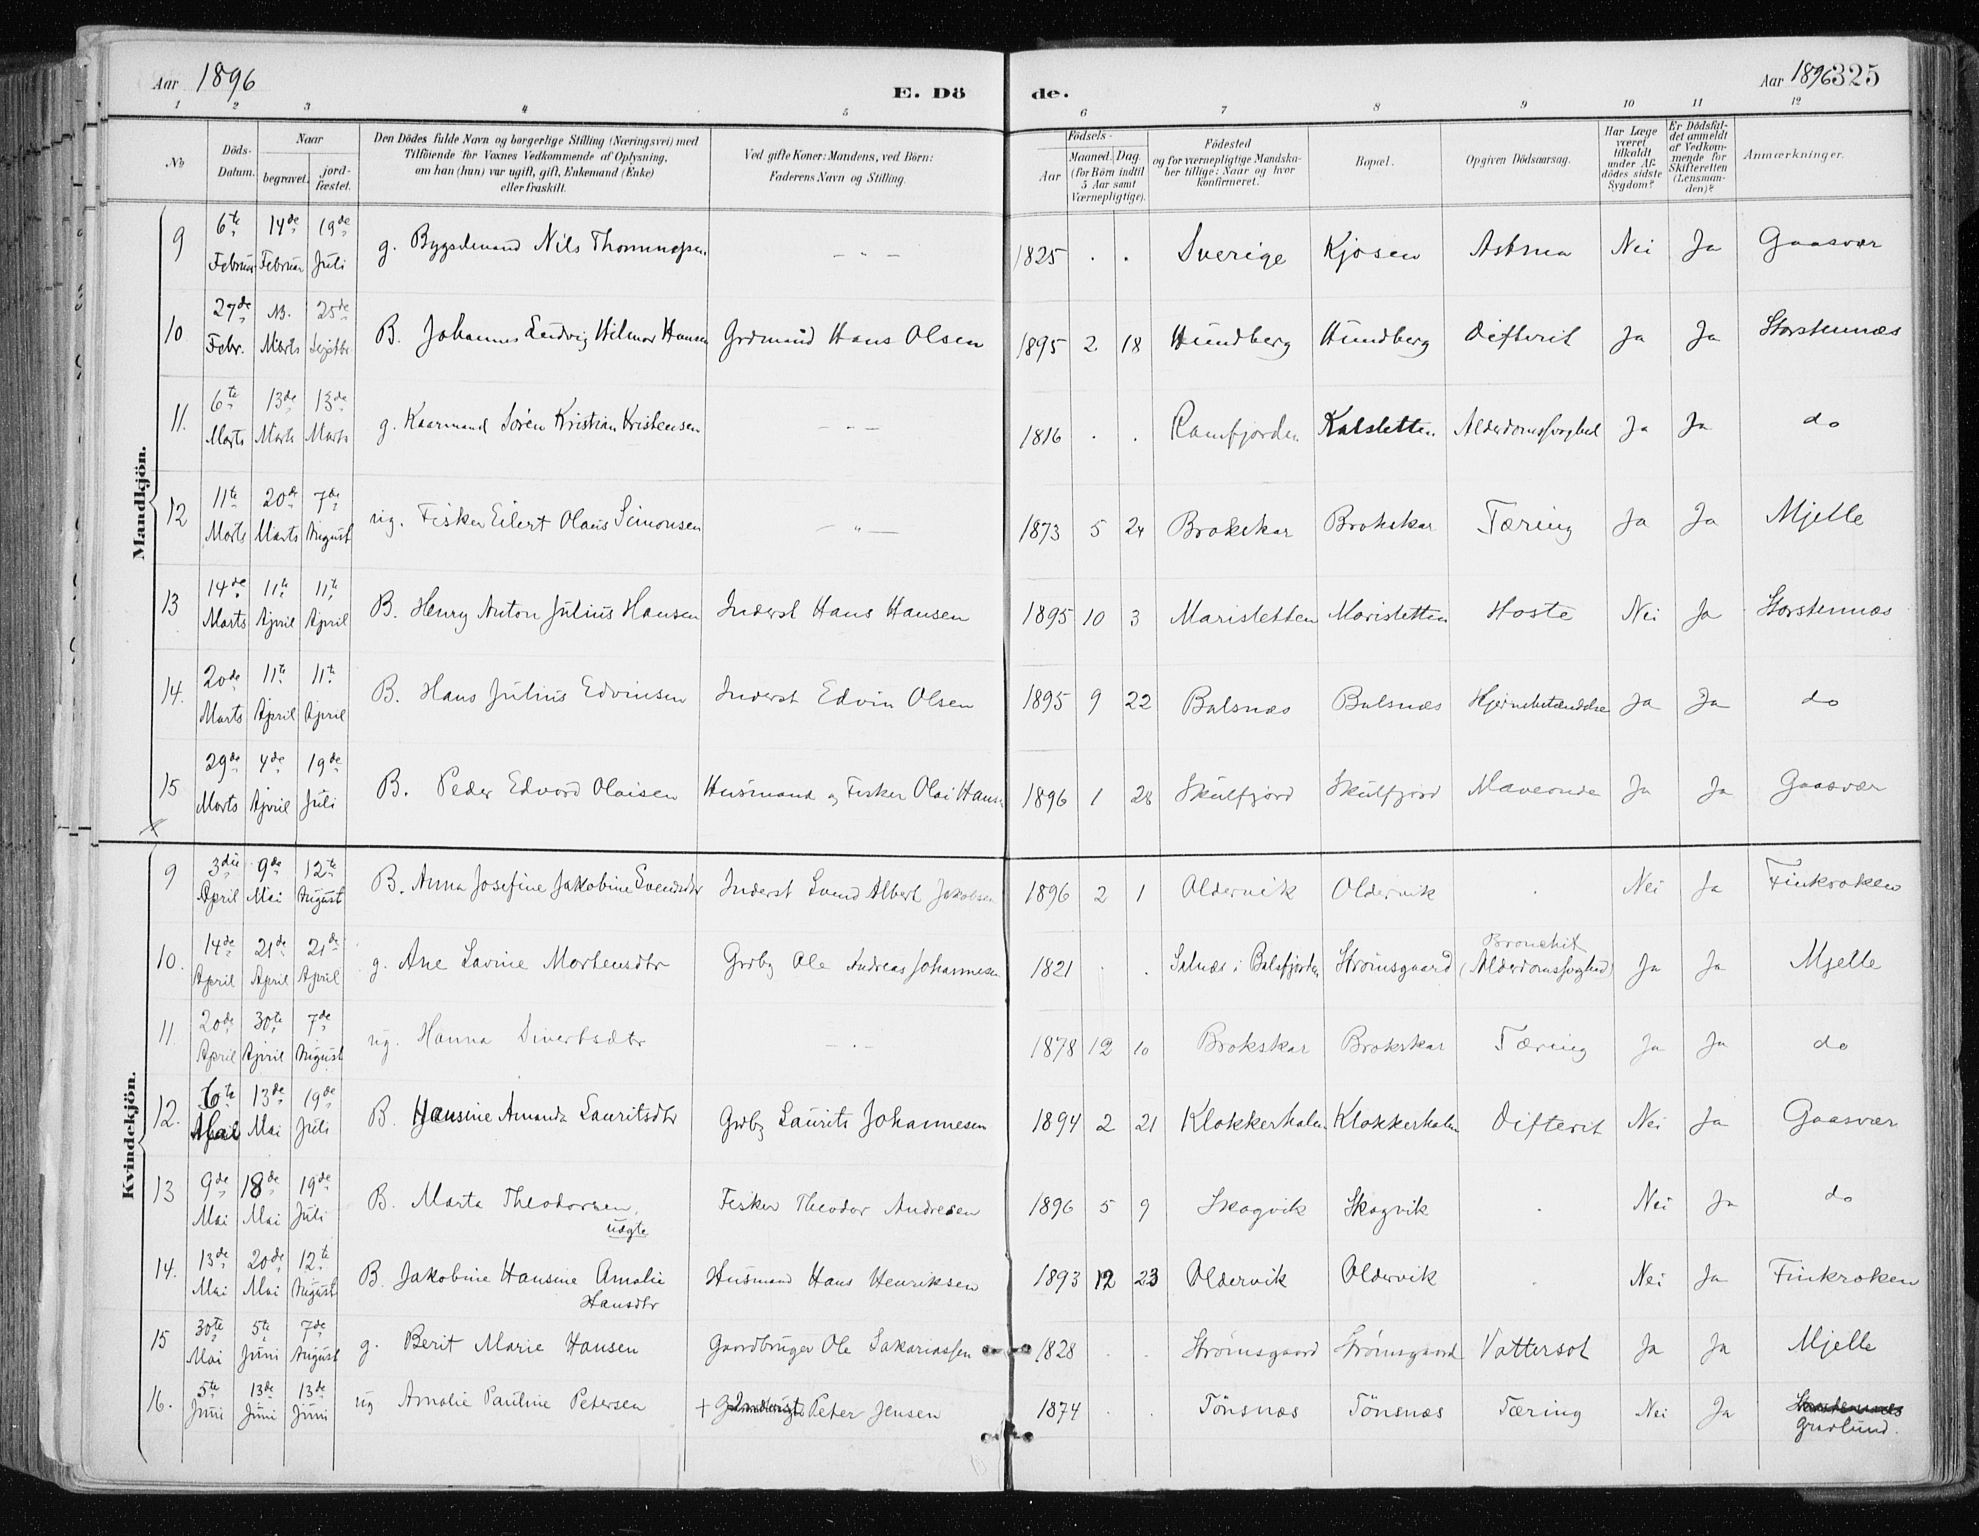 Aar 1896
E. Dö
de.
Aar 1896 325
1 2 3 4 5 6 7 8 9 10 11 12
No
Döds-Datum.
Naar
begravet.
jord-fæstet.
Den Dödes fulde Navn og borgerlige Stilling (Næringsvei) med
Tilföiende for Voxnes Vedkommende af Oplysning,
om han (hun) var ugift, gift, Enkemand (Enke)
eller fraskilt.
Ved gifte Koner: Mandens, ved Börn:
Faderens Navn og Stilling.
Födsels-
Aar
Maaned. Dag
(for Börn indtil
5 Aar samt
Værnepligtige).
Födested
og for værnepligtige Mandska-
ber tillige: Naar og hvor
konfirmeret.
Bopæl.
Opgiven Dödsaarsag.
Har Læge
været
tilkaldt
under Af-
dödes sidste
Sygdom?
Er Dödsfal-
det anmeldt
af Vedkom-
mende for
Skifteretten
(Lensman-
den)?
Anmærkninger.
Mandkjön.
9 6te Februar 14de Februar 19de Juli g. Bygselmand Nils Thomassen — " — 1825 . . Sverige Kjosen Astma Nei Ja Gaasvær
10 27de Febr. Marts 25de Septbr. B. Johannes Ludvig Hilmar Hansen Grdmand Hans Olsen 1895 2 18 Hundberg Hundberg Difterit Ja Ja Storstennæs
11. 6te Marts 13de Marts 13de Marts g. Kaarmand Sören Kristian Kristensen — " — 1816 . . Ramfjorden Kalsletten Alderdomssvaghed Ja Ja do
12 11te Marts 20de Marts 7de August ug. Fisker Eilert Olaus Simonsen — " — 1873 5 24 Brokskar Brokskar Tæring Ja Ja Mjelle
13 14de Marts 11te April 11te April B. Henry Anton Julius Hansen Inderst Hans Hansen 1895 10 3 Marisletten Marisletten Hoste Nei Ja Storstennæs
14. 20de Marts 11te April 11te April B. Hans Julius Edvinsen Inderst Edvin Olsen 1895 9 22 Balsnæs Balsnæs Hjernebetændelse Ja Ja do
15 29de Marts 4de April 19de Juli B. Peder Edvard Olaisen Husmand og Fisker Olai Hans 1896 1 28 Skulfjord Skulfjord Maveonde Ja Ja Gaasvær
Kvindekjön.
9 3die April 9de Mai 12te August B. Anna Josefine Jakobine Svendsdtr Inderst Svend Albert Jakobsen 1896 2 1 Oldervik Oldervik . Nei Ja Finkroken
10. 14de April 21de April 21de April g. Ane Lavine Mortensdtr Grdbg Ole Andreas Johannesen 1821 . . Salnæs i Balsfjorden Strömsgaard Bronchit (Alderdomssvaghed) Ja Ja Mjelle
11. 20de April 30te April 7de August ug. Hanna Sivertsdtr — . — 1878 12 10 Brokskar Brokskar Tæring Ja Ja do
12. 6te Mai 13de Mai 19de Juli B. Hansine Amanda Lauritsdtr Grdbg Laurits Johannesen 1894 2 21 Klokkerholm Klokkerholm Difterit Nei Ja Gaasvær
13 9de Mai 18de Mai 19de Juli B. Marta Theodorsen, uægte Fisker Theodor Andresen 1896 5 9 Skogvik Skogvik . Nei Ja do
14. 13de Mai 20de Mai 12te August B. Jakobine Hansine Amalie Hansdtr Husmand Hans Henriksen 1893 12 23 Oldervik Oldervik . Nei Ja Finkroken
15 30te Mai 5te Juni 7de August g. Berit Marie Hansen Gaardbruger Ole Sakariassen 1828 . . Strömsgaard Strömsgaard Vattersot Ja Ja Mjelle
16. 5te Juni 13de Juni 13de Juni ug Amalie Pauline Petersen + Inderst Peter Jensen 1874 . . Tönsnæs Tönsnæs Tæring Nei Ja Storstennæs
Grødlund.